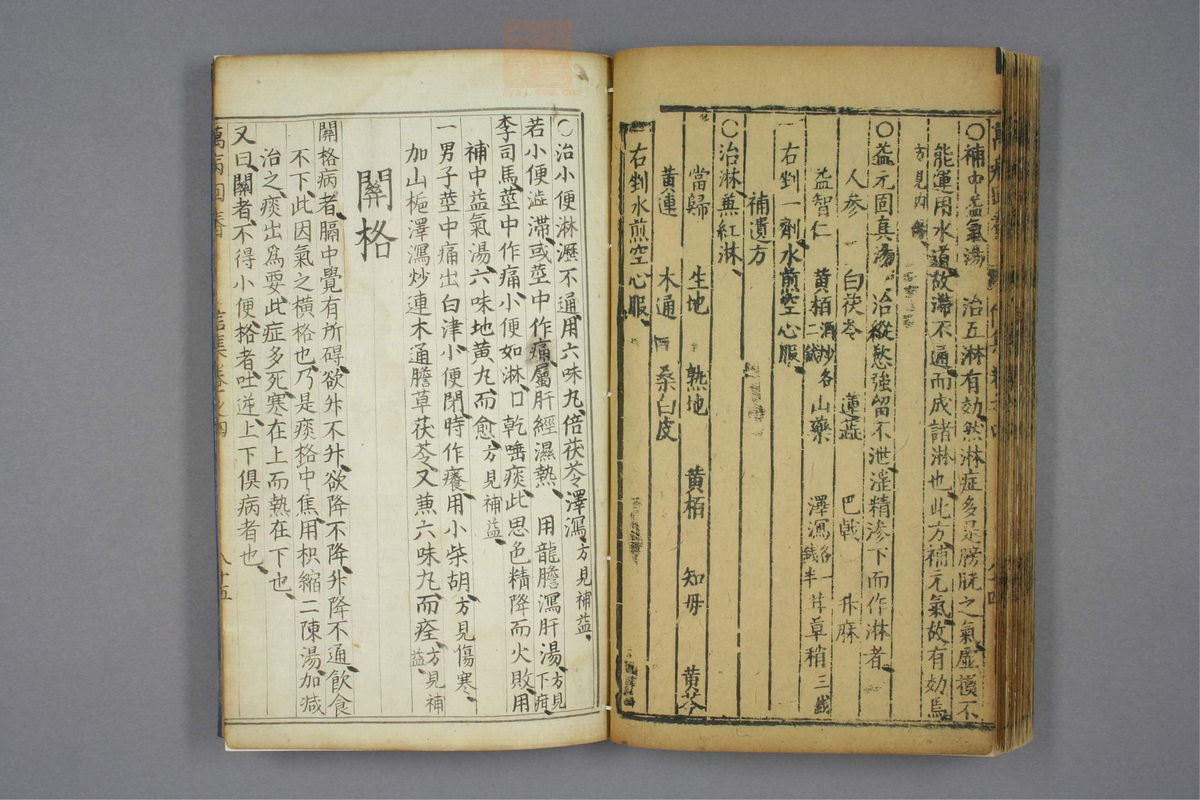 ○補中益氣湯　治五淋有効然淋症多是膀胱之氣虛損不
能運用水道故滯不通而成諸淋也此方補元氣故有効焉
方見內傷
○益元固真湯　治縱慾強留不泄淫精滲下而作淋者
人參　白茯苓　蓮蕊　巴戟　升麻
益智仁　黃栢酒炒各二錢　山藥　澤瀉各一錢半　甘草稍三錢
右剉一劑水煎空心服
補遺方
○治淋兼紅淋
當歸　生地　熟地　黃栢　知母　黃芩
黃連　木通　桑白皮
右剉水煎空心服
○治小便淋瀝不通用六味丸倍茯苓澤瀉方見補益
若小便澁滯或莖中作痛屬肝經濕熱　用龍膽瀉肝湯方見下疳
李司馬莖中作痛小便如淋口乾唾痰此思色精降而火敗用
補中益氣湯六味地黃丸而愈方見補益
一男子莖中痛出白津小便閉時作癢用小柴胡方見傷寒
加山梔澤瀉炒連木通膽草茯苓又蒹六味丸而痊方見補益
關格
關格病者膈中覺有所碍欲升不升欲降不降升降不通飲食
不下此因氣之橫格也乃是痰格中焦用枳縮二陳湯加减
治之痰出爲要此症多死寒在上而熱在下也
又曰關者不得小便格者吐逆上下俱病者也
萬病回春　信集卷之四　八十五